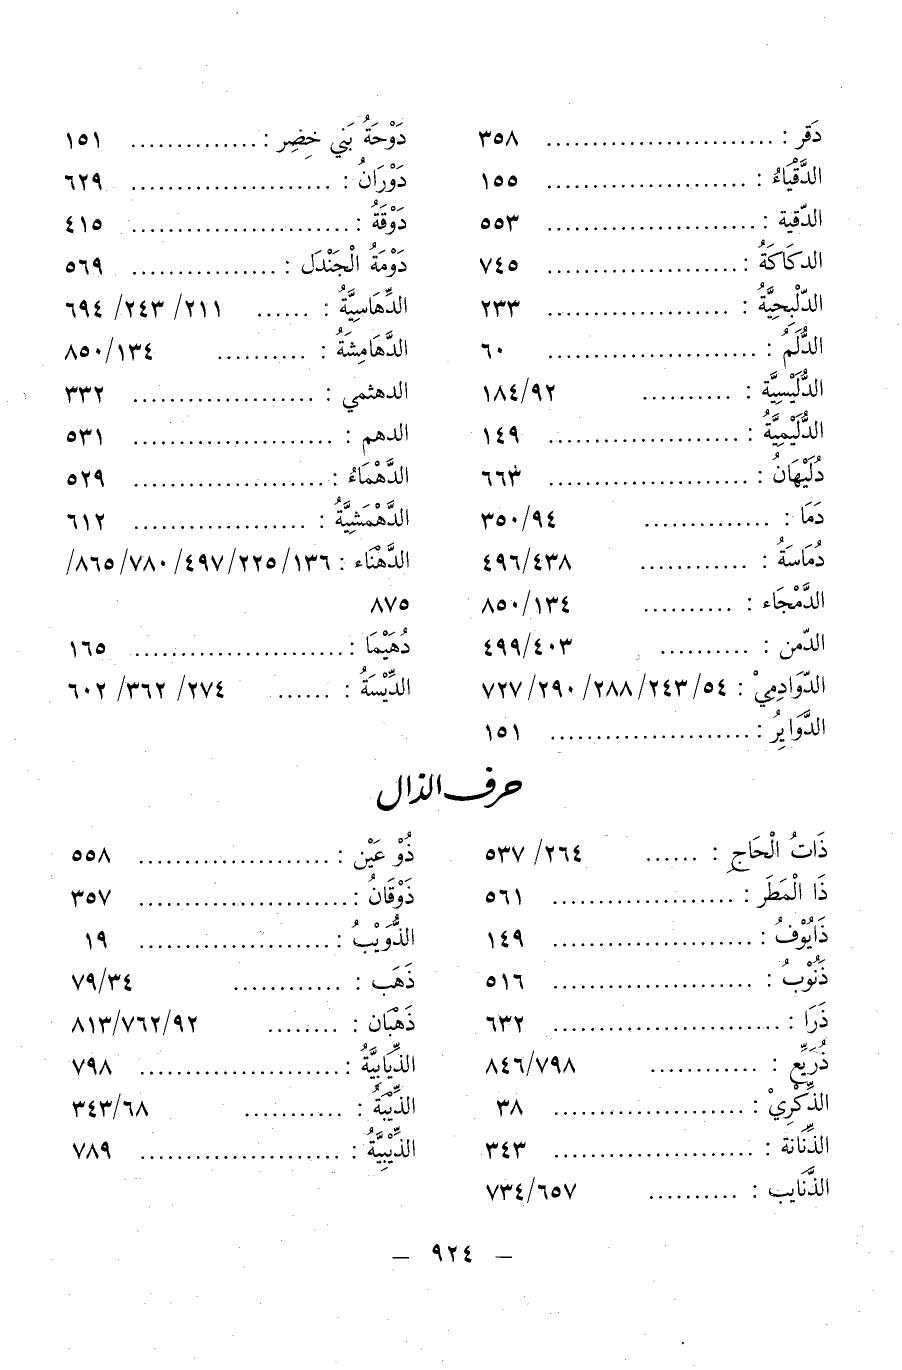 دَقر : ......................... ٣٥٨
الدَّقْيَاءُ : ...................... ١٥٥
الدّقية : ....................... ٥٥٣
الدكَاكَةُ : ..................... ٧٤٥
الدّلْبِحِيَّةُ : .................... ٢٣٣
الدُّلَمُ : ....................... ٦٠
الدُّلَيْسِيَّة : .......... ١٨٤/٩٢
الدُّلَيْمِيَّةُ : ..................... ١٤٩
دُلَيْهَانُ : ...................... ٦٦٣
دَمَا : .............. ٣٥٠/٩٤
دُمَاسَةُ : ............ ٤٩٦/٤٣٨
الدَّمْجَاء : .......... ٨٥٠/١٣٤
الدّمن : .......... ٤٩٩/٤٠٣
الدَّوَادِمِيْ : ٥٤/ ٢٤٣/ ٢٨٨/ ٢٩٠/ ٧٢٧
الدَّوَايِرُ : ...................... ١٥١
دَوْحَةُ بَنِي خِضِر : .............. ١٥١
دَوْرَانُ : ...................... ٦٢٩
دَوْقَةُ : ........................ ٤١٥
دَوْمَةُ الْجَنْدَل : ................ ٥٦٩
الدِّهَاسِيَّةُ : ...... ٢١١/ ٢٤٣/ ٦٩٤
الدَّهَامِشَةُ : .......... ٨٥٠/١٣٤
الدهثمي : .................... ٣٣٢
الدهم : ...................... ٥٣١
الدَّهْمَاءُ : ..................... ٥٢٩
الدَّهْمَشِيَّةُ : ................... ٦١٢
الدَّهْنَاء : ١٣٦/ ٢٢٥/ ٤٩٧/ ٧٨٠/ ٨٦٥/
٨٧٥
دُهَيْمَا : ....................... ١٦٥
الدِّيْسَةُ : ...... ٢٧٤/ ٣٦٢/ ٦٠٢
حرف الذال
ذَاتُ الْحَاجِ : ...... ٢٦٤/ ٥٣٧
ذَا الْمَطَر : .................... ٥٦١
ذَايُوْفُ : ...................... ١٤٩
ذَنُوْبُ : ...................... ٥١٦
ذَرَا : ......................... ٦٣٢
ذُرَيِّع : ............ ٨٤٦/٧٩٨
الذِّكْرِيْ : ..................... ٣٨
الذِّنَانَة : ...................... ٣٤٣
الذَّنَايب : .......... ٧٣٤/٦٥٧
ذُوْ عَيْن : ..................... ٥٥٨
ذَوْقَانُ : ....................... ٣٥٧
الذُّوَيْبُ : ..................... ١٩
ذَهَب : ............ ٧٩/٣٤
ذَهْبَان : ........ ٨١٣/٧٦٢/٩٢
الذِّيَابِيَّةُ : ..................... ٧٩٨
الذِّيْبَةُ : ........... ٣٤٣/٦٨
الذِّيْبِيَّةُ : ..................... ٧٨٩
— ٩٢٤ —